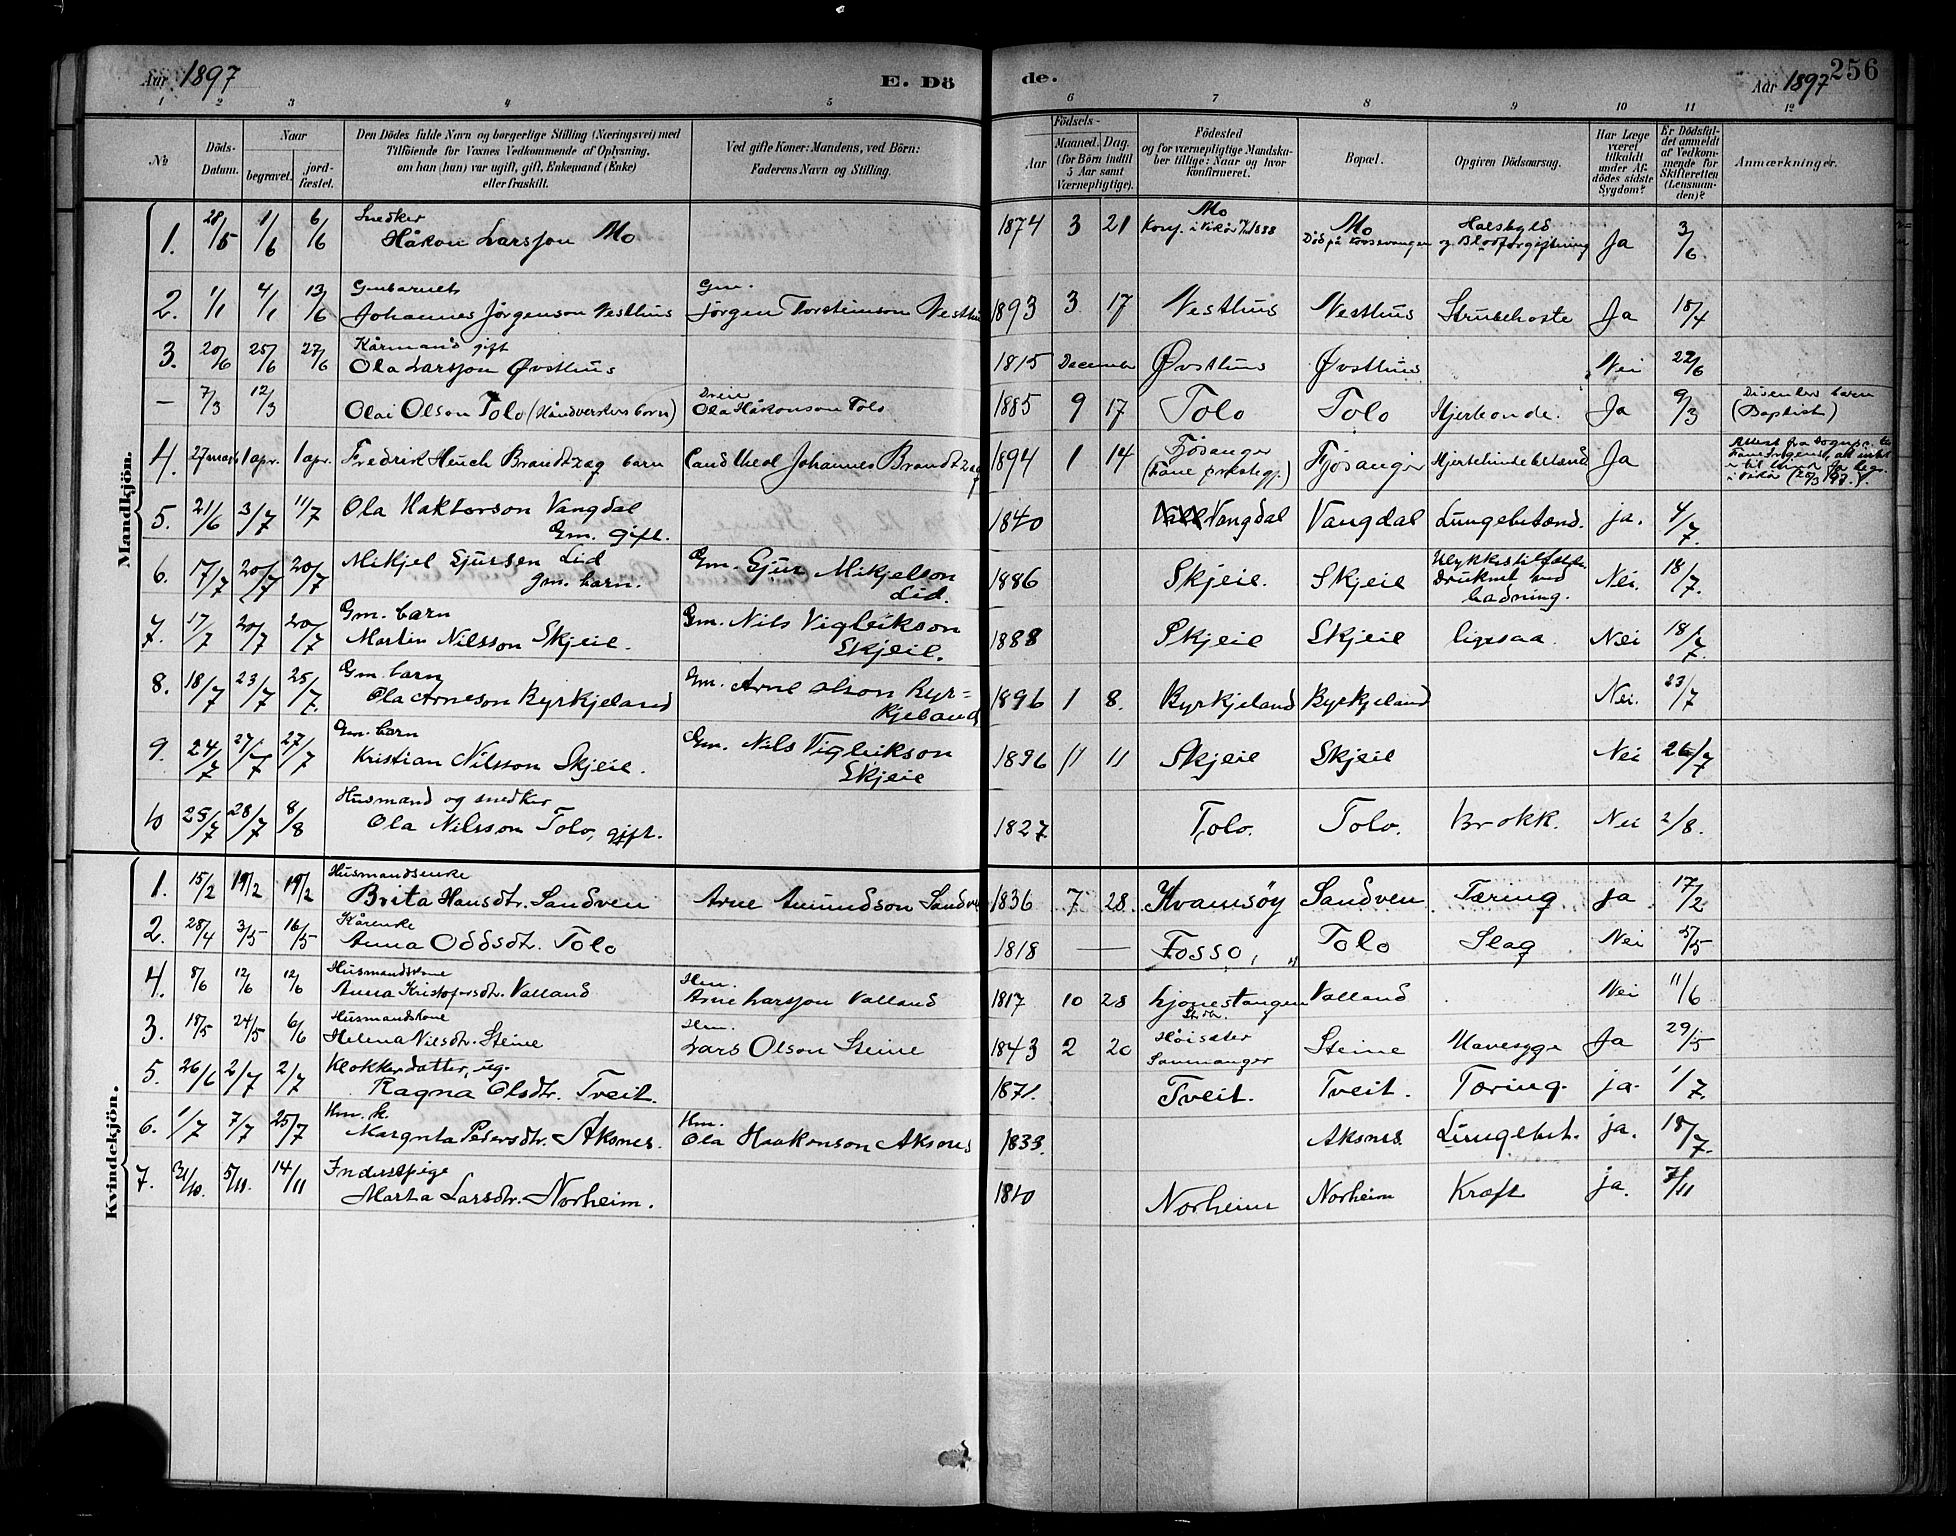 Aar 1897 E. Dö de. Aar 1897 256
1 2 3 4 5 6 7 8 9 10 11 12
No Döds-Datum. Naar begravet. jord-fæstet. Den Dödes fulde Navn og borgerlige Stilling (Næringsvei) med Tilföiende for Voxnes Vedkommende af Oplysning, om han (hun) var ugift, gift, Enkemand (Enke) eller fraskilt. Ved gifte Koner: Mandens, ved Börn: Faderens Navn og Stilling. Födsels- Aar Maaned. Dag. (for Börn indtil 5 Aar samt Værnepligtige). Födested og for værnepligtige Mandska-ber tillige: Naar og hvor konfirmeret. Bopæl. Opgiven Dödsaarsag. Har Læge været tilkaldt under Af-dödes sidste Sygdom? Er Dödsfal-det anmeldt af Vedkom-mende for Skifteretten (Lensman-den)? Anmærkninger.
Mandkjön.
1. 28/5 1/6 6/6 Snedker Håkon Larsson Mo 1874 3 21 Mo Konf. i Vikör 1888 Mo Död på Vossevangen Halsbyld og Blodforgiftning Ja 3/6
2. 1/1 4/1 13/6 Gmbarnets Johannes Jørgenson Nesthus Gm. Jørgen Torsteinson Nesthus 1893 3 17 Nesthus Nesthus Strubehoste Ja 18/4
3. 20/6 25/6 27/6 Kårmand gift Ola Larsson Øvsthus 1815 December Øvsthus Øvsthus Nei 22/6
— 7/3 12/3 Olai Olson Tolo (Håndverkers born) Ola Håkonson Tolo 1885 9 17 Tolo Tolo Hjerteonde. Ja 9/3 Disenter barn (Baptist)
4. 27 marts 1 apr. 1 apr. Fredrik Heuch Brandtzæg barn Cand theol Johannes Brandtzæg 1894 1 14 Fjøsanger (Fane præstegj.) Fjøsanger Hjertehindebetænd Ja
5. 21/6 3/7 11/7 Ola Haktorson Vangdal Gm. gift. 1840 Vangdal Vangdal Lungebetænd. ja. 4/7.
6. 17/7 20/7 20/7 Mikjel Gjursen Lid gm. barn. Gm. Gjur Mikjelson Lid. 1886 Skjeie. Skjeie Ulykkestilfælde. Druknet ved badning. Nei. 18/7.
7. 17/7 20/7 20/7 Gm. barn Martin Nilsson Skjeie. Gm. Nils Vigleikson Skjeie. 1888 Skjeie Skjeie ligesaa Nei 18/7.
8. 18/7 23/7 25/7. Gm. barn Ola Arneson Byrkjeland Gm. Arne Olson Byr=kjeland 1896 1 8. Byrkjeland Byrkjeland Nei. 23/7
9. 24/7 27/7 27/7 Gm. barn Kristian Nilsson Skjeie. Gm. Nils Vigleikson Skjeie 1896 11 11 Skjeie Skjeie Nei 26/7
10 25/7 28/7 8/8 Husmand og snedker Ola Nilsson Tolo, gift. 1827 Tolo. Tolo. Brokk. Nei 2/8.
Kvindekjön.
1. 15/2 19/2 19/2 Husmandsenke Brita Hansdtr. Sandven Arne Amundson Sandven 1836 7 28. Kvamsöy Sandven Tæring Ja 17/2
2. 28/4 3/5 16/5 Kårenke Anna Oddsdtr. Tolo 1818 — Fosso, Tolo Slag Nei 5/5
4. 8/6 12/6 12/6 Husmandskone Anna Kristofersdtr. Valland Hm. Arne Larsson Valland 1817 10 28 Ljonestangen Valland Nei 11/6
3. 18/5 24/5 6/6 Husmandskone Helena Nilsdtr. Steine Hm. Lars Olson Steine 1843 2 20 Höisæter Sammanger Steine Mavesyge Ja 29/5
5. 26/6 2/7 2/7 Klokkerdatter, ug. Ragna Olsdtr. Tveit. 1871. Tveit. Tveit. Tæring. ja. 1/7.
6. 1/7 7/7 25/7 Hm. k. Margnta Pedersdtr. Aksnes. Hm. Ola Haakonson Aksnes 1833. Aksnes. Lungebet. ja. 18/7.
7. 31/10. 5/11. 14/11 Inderstpige Marta Larsdtr. Norheim. 1810 Norheim Norheim Kræft ja. 7/11